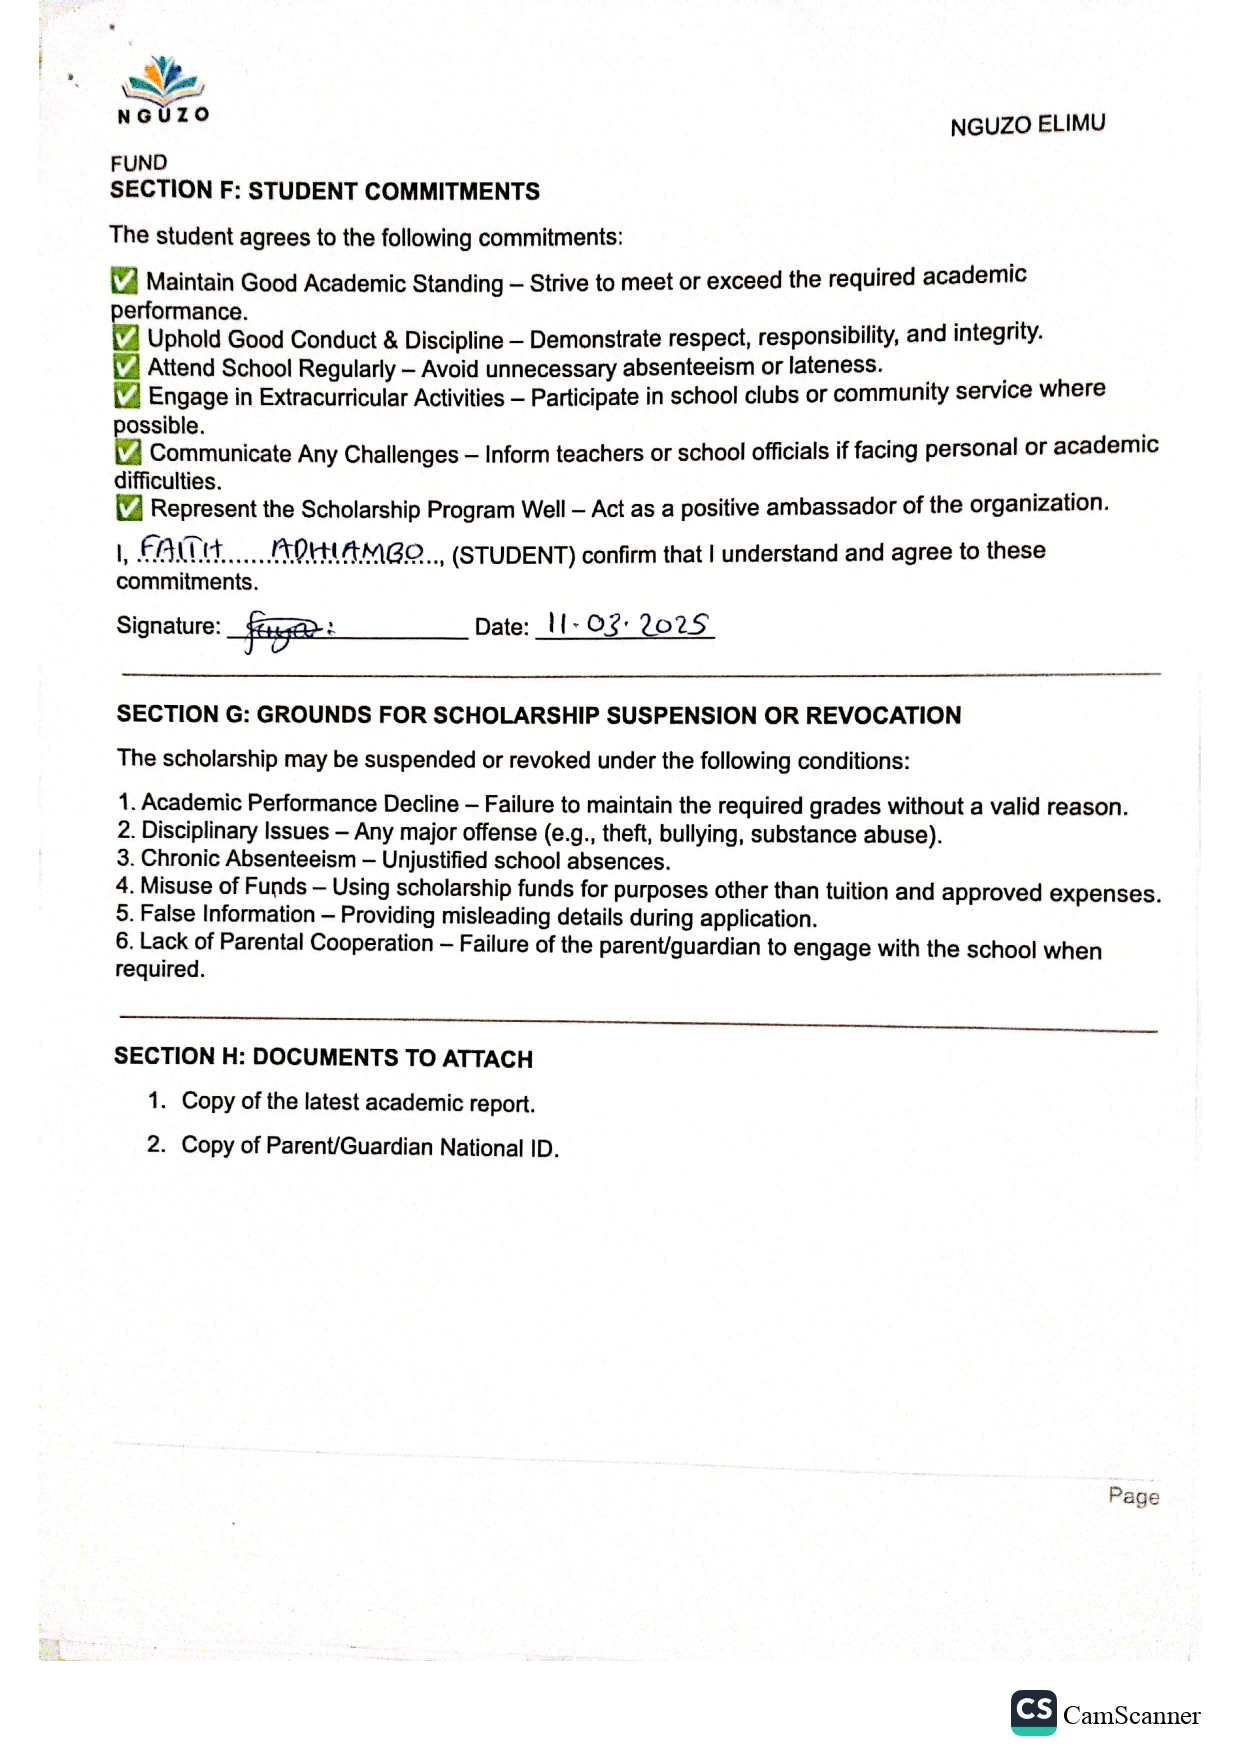 NGUZO
NGUZO ELIMU
FUND
SECTION F: STUDENT COMMITMENTS
The student agrees to the following commitments:
✅ Maintain Good Academic Standing – Strive to meet or exceed the required academic
performance.
✅ Uphold Good Conduct & Discipline – Demonstrate respect, responsibility, and integrity.
✅ Attend School Regularly – Avoid unnecessary absenteeism or lateness.
✅ Engage in Extracurricular Activities – Participate in school clubs or community service where
possible.
✅ Communicate Any Challenges – Inform teachers or school officials if facing personal or academic
difficulties.
✅ Represent the Scholarship Program Well – Act as a positive ambassador of the organization.
I, FAITH ADHIAMBO, (STUDENT) confirm that I understand and agree to these
commitments.
Signature: Date: 11.03.2025
SECTION G: GROUNDS FOR SCHOLARSHIP SUSPENSION OR REVOCATION
The scholarship may be suspended or revoked under the following conditions:
1. Academic Performance Decline – Failure to maintain the required grades without a valid reason.
2. Disciplinary Issues – Any major offense (e.g., theft, bullying, substance abuse).
3. Chronic Absenteeism – Unjustified school absences.
4. Misuse of Funds – Using scholarship funds for purposes other than tuition and approved expenses.
5. False Information – Providing misleading details during application.
6. Lack of Parental Cooperation – Failure of the parent/guardian to engage with the school when
required.
SECTION H: DOCUMENTS TO ATTACH
1. Copy of the latest academic report.
2. Copy of Parent/Guardian National ID.
Page
CS CamScanner